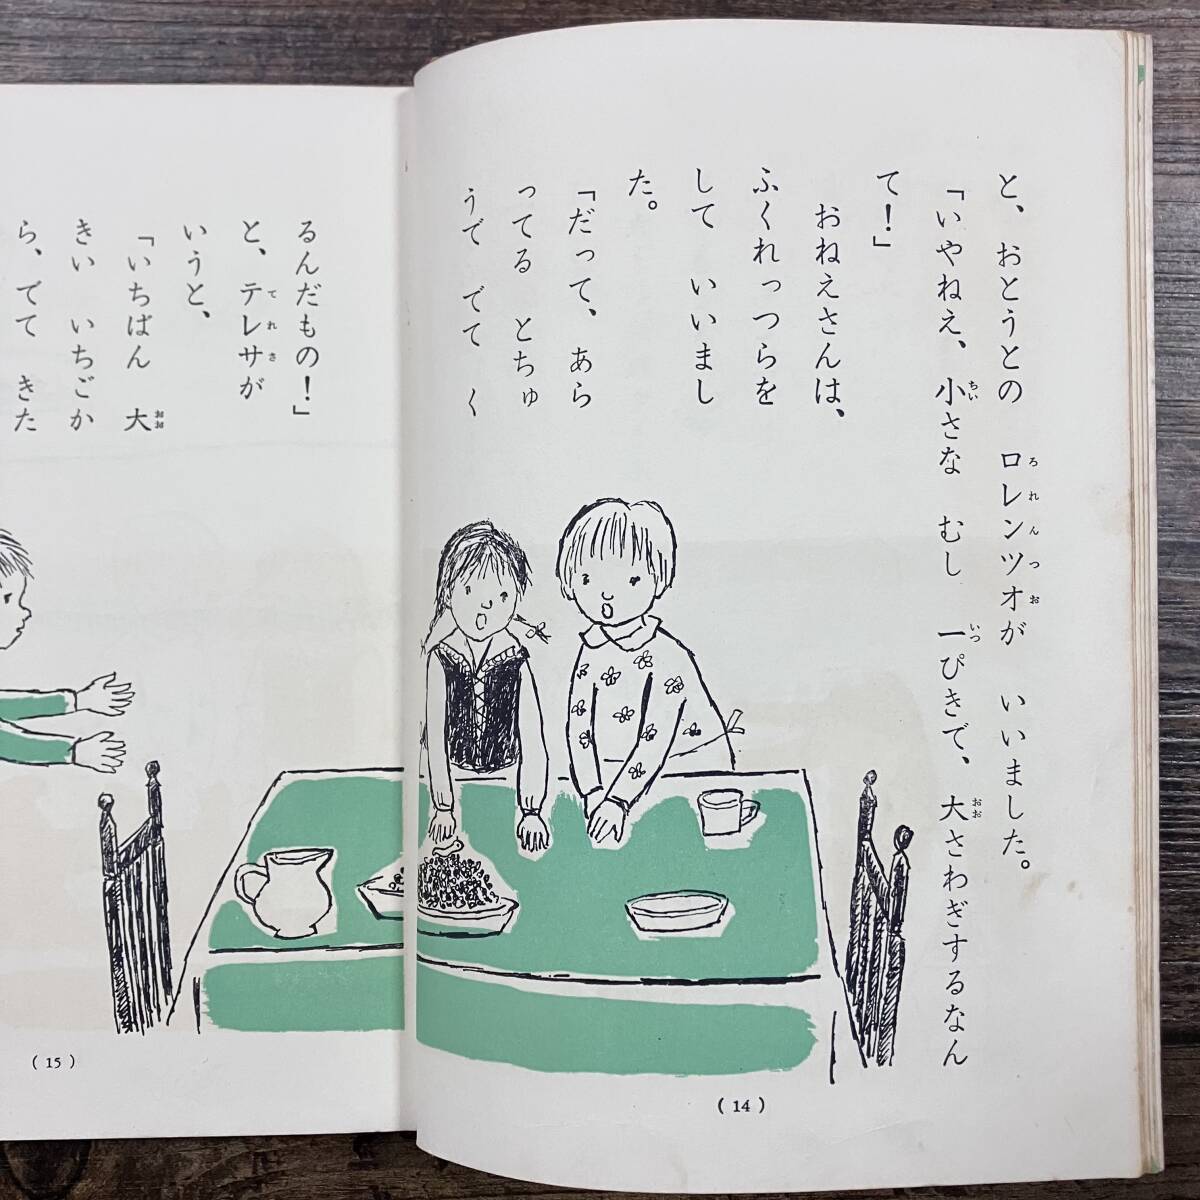 と、おとうとの ロレンツオが いいました。
ろれんつお
「いやねえ、小さな むし 一ぴきで、大さわぎするなん
ちい いつ おお
て！」
おねえさんは、
ふくれっつらを
して いいまし
た。
「だって、あら
ってる とちゅ
うで でて く
(14)
るんだもの！」
と、テレサが
てれさ
いうと、
「いちばん 大
おお
きい いちごか
ら、でて きた
(15)